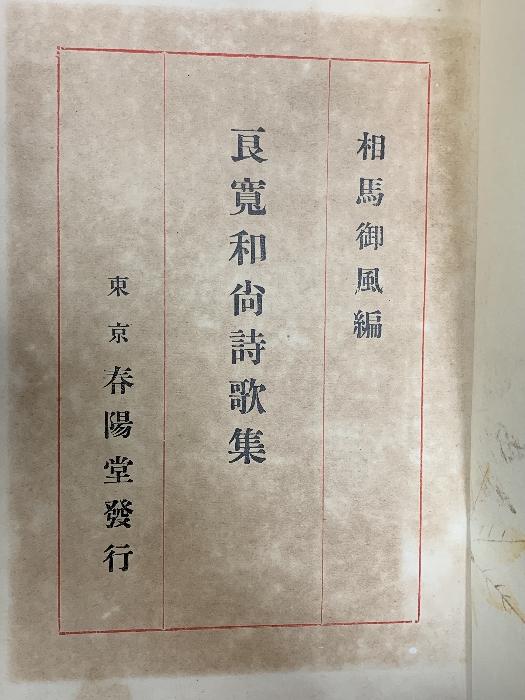 相馬御風編
良寬和尙詩歌集
東京 春陽堂發行